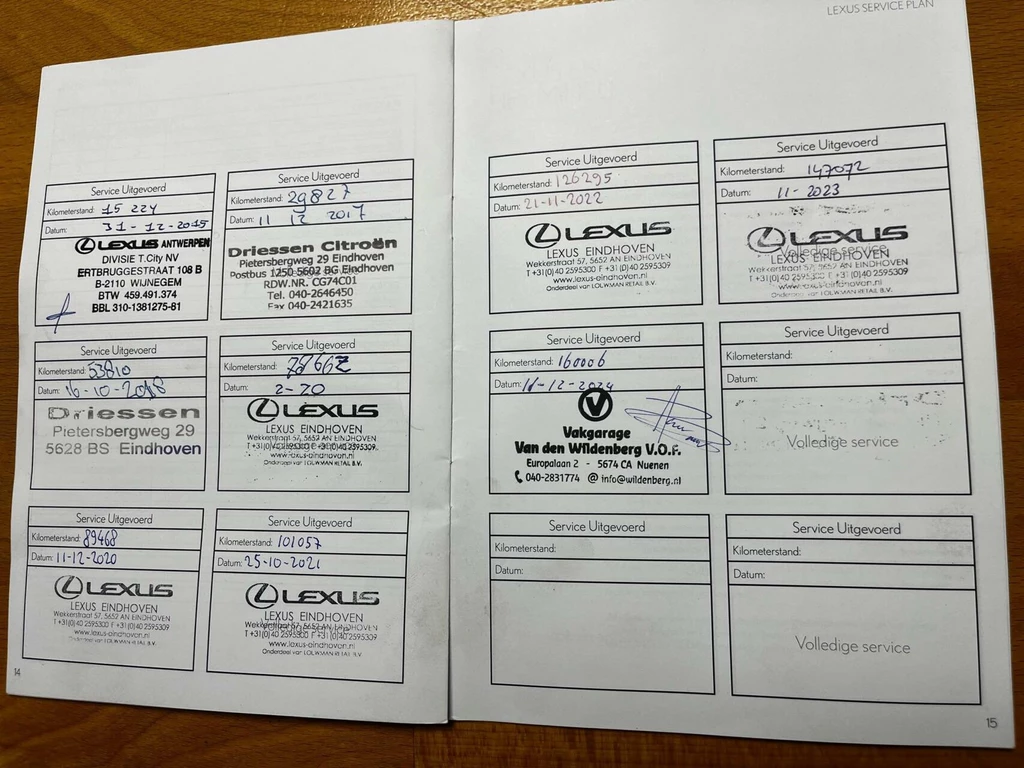 LEXUS SERVICE PLAN
Service Uitgevoerd
Kilometerstand: 15 224
Datum: 31-12-2015
LEXUS ANTWERPEN
DIVISIE T.City NV
ERTBRUGGESTRAAT 108 B
B-2110 WIJNEGEM
BTW 459.491.374
BBL 310-1381275-61
Service Uitgevoerd
Kilometerstand: 29827
Datum: 11 12 2017
Driessen Citroën
Pietersbergweg 29 Eindhoven
Postbus 1250 5602 BG Eindhoven
RDW.NR. CG74C01
Tel. 040-2646450
Fax 040-2421635
Service Uitgevoerd
Kilometerstand: 53810
Datum: 16-10-2018
Driessen
Pietersbergweg 29
5628 BS Eindhoven
Service Uitgevoerd
Kilometerstand: 78662
Datum: 2-20
LEXUS
LEXUS EINDHOVEN
Wekkerstraat 57, 5652 AN EINDHOVEN
T +31(0)40 2595300 F +31(0)40 2595309
www.lexus-eindhoven.nl
Onderdeel van LOUWMAN RETAIL B.V.
Service Uitgevoerd
Kilometerstand: 89468
Datum: 11-12-2020
LEXUS
LEXUS EINDHOVEN
Wekkerstraat 57, 5652 AN EINDHOVEN
T +31(0)40 2595300 F +31(0)40 2595309
www.lexus-eindhoven.nl
Onderdeel van LOUWMAN RETAIL B.V.
Service Uitgevoerd
Kilometerstand: 101057
Datum: 25-10-2021
LEXUS
LEXUS EINDHOVEN
Wekkerstraat 57, 5652 AN EINDHOVEN
T +31(0)40 2595300 F +31(0)40 2595309
www.lexus-eindhoven.nl
Onderdeel van LOUWMAN RETAIL B.V.
14
Service Uitgevoerd
Kilometerstand: 126295
Datum: 21-11-2022
LEXUS
LEXUS EINDHOVEN
Wekkerstraat 57, 5652 AN EINDHOVEN
T +31(0)40 2595300 F +31(0)40 2595309
www.lexus-eindhoven.nl
Onderdeel van LOUWMAN RETAIL B.V.
Service Uitgevoerd
Kilometerstand: 147072
Datum: 11-2023
LEXUS
Volledige service
LEXUS EINDHOVEN
Wekkerstraat 57, 5652 AN EINDHOVEN
T +31(0)40 2595300 F +31(0)40 2595309
www.lexus-eindhoven.nl
Onderdeel van LOUWMAN RETAIL B.V.
Service Uitgevoerd
Kilometerstand: 160006
Datum: 16-12-2024
V
Vakgarage
Van den Wildenberg V.O.F.
Europalaan 2 - 5674 CA Nuenen
040-2831774 @ info@wildenberg.nl
Service Uitgevoerd
Kilometerstand:
Datum:
Volledige service
Service Uitgevoerd
Kilometerstand:
Datum:
Service Uitgevoerd
Kilometerstand:
Datum:
Volledige service
15